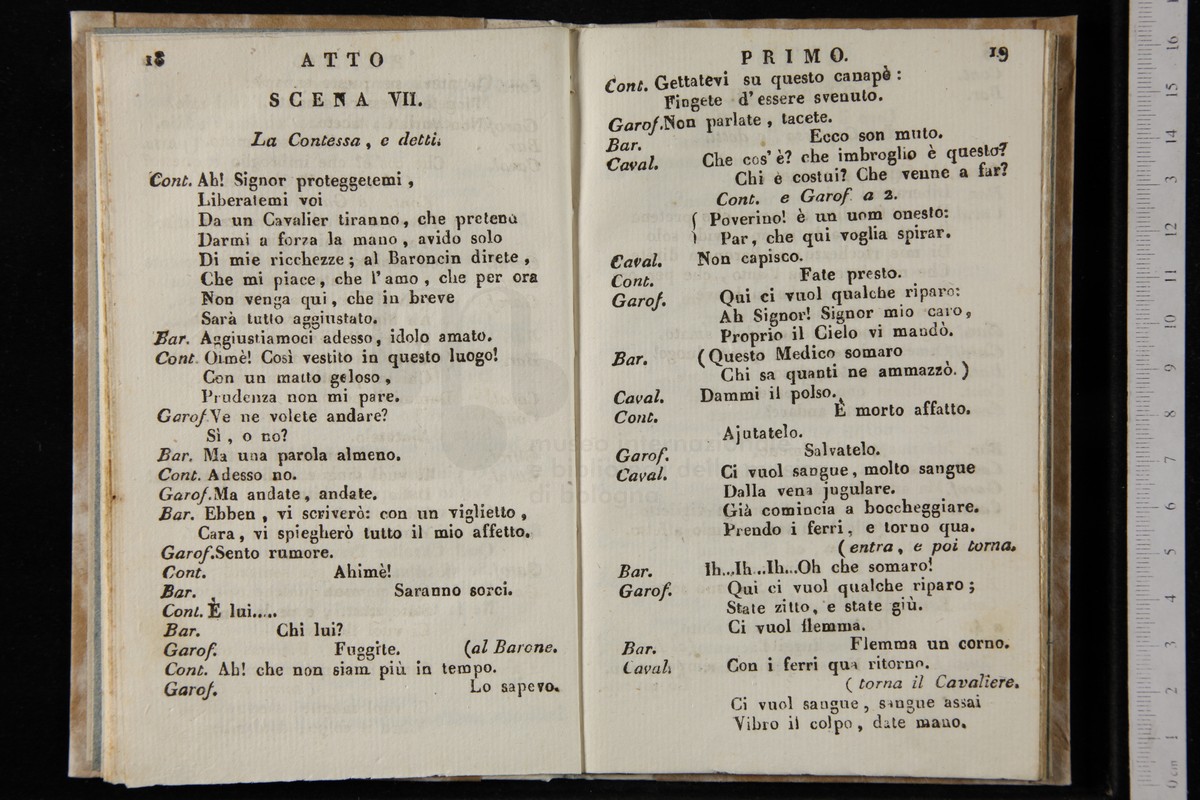 18 ATTO
SCENA VII.
La Contessa, e detti.
Cont. Ah! Signor proteggetemi,
Liberatemi voi
Da un Cavalier tiranno, che pretend
Darmi a forza la mano, avido solo
Di mie ricchezze; al Baroncin direte,
Che mi piace, che l'amo, che per ora
Non venga qui, che in breve
Sarà tutto aggiustato.
Bar. Aggiustiamoci adesso, idolo amato.
Cont. Oimè! Così vestito in questo luogo!
Con un matto geloso,
Prudenza non mi pare.
Garof. Ve ne volete andare?
Sì, o no?
Bar. Ma una parola almeno.
Cont. Adesso no.
Garof. Ma andate, andate.
Bar. Ebben, vi scriverò: con un viglietto,
Cara, vi spiegherò tutto il mio affetto.
Garof. Sento rumore.
Cont. Ahimè!
Bar. Saranno sorci.
Cont. È lui.....
Bar. Chi lui?
Garof. Fuggite. (al Barone.
Cont. Ah! che non siam più in tempo.
Garof. Lo sapevo.
PRIMO. 19
Cont. Gettatevi su questo canapè:
Fingete d'essere svenuto.
Garof. Non parlate, tacete.
Bar. Ecco son muto.
Caval. Che cos'è? che imbroglio è questo?
Chi è costui? Che venne a far?
Cont. e Garof. a 2.
( Poverino! è un uom onesto:
) Par, che qui voglia spirar.
Caval. Non capisco.
Cont. Fate presto.
Garof. Qui ci vuol qualche riparo:
Ah Signor! Signor mio caro,
Proprio il Cielo vi mandò.
Bar. (Questo Medico somaro
Chi sa quanti ne ammazzò.)
Caval. Dammi il polso.
Cont. È morto affatto.
Ajutatelo.
Garof. Salvatelo.
Caval. Ci vuol sangue, molto sangue
Dalla vena jugulare.
Già comincia a boccheggiare.
Prendo i ferri, e torno qua.
(entra, e poi torna.
Bar. Ih...Ih...Ih...Oh che somaro!
Garof. Qui ci vuol qualche riparo;
State zitto, e state giù.
Ci vuol flemma.
Bar. Flemma un corno.
Caval. Con i ferri qua ritorno.
(torna il Cavaliere.
Ci vuol sangue, sangue assai
Vibro il colpo, date mano.
museo internazionale
e biblioteca della
di bologna
0 cm 1 2 3 4 5 6 7 8 9 10 11 12 13 14 15 16